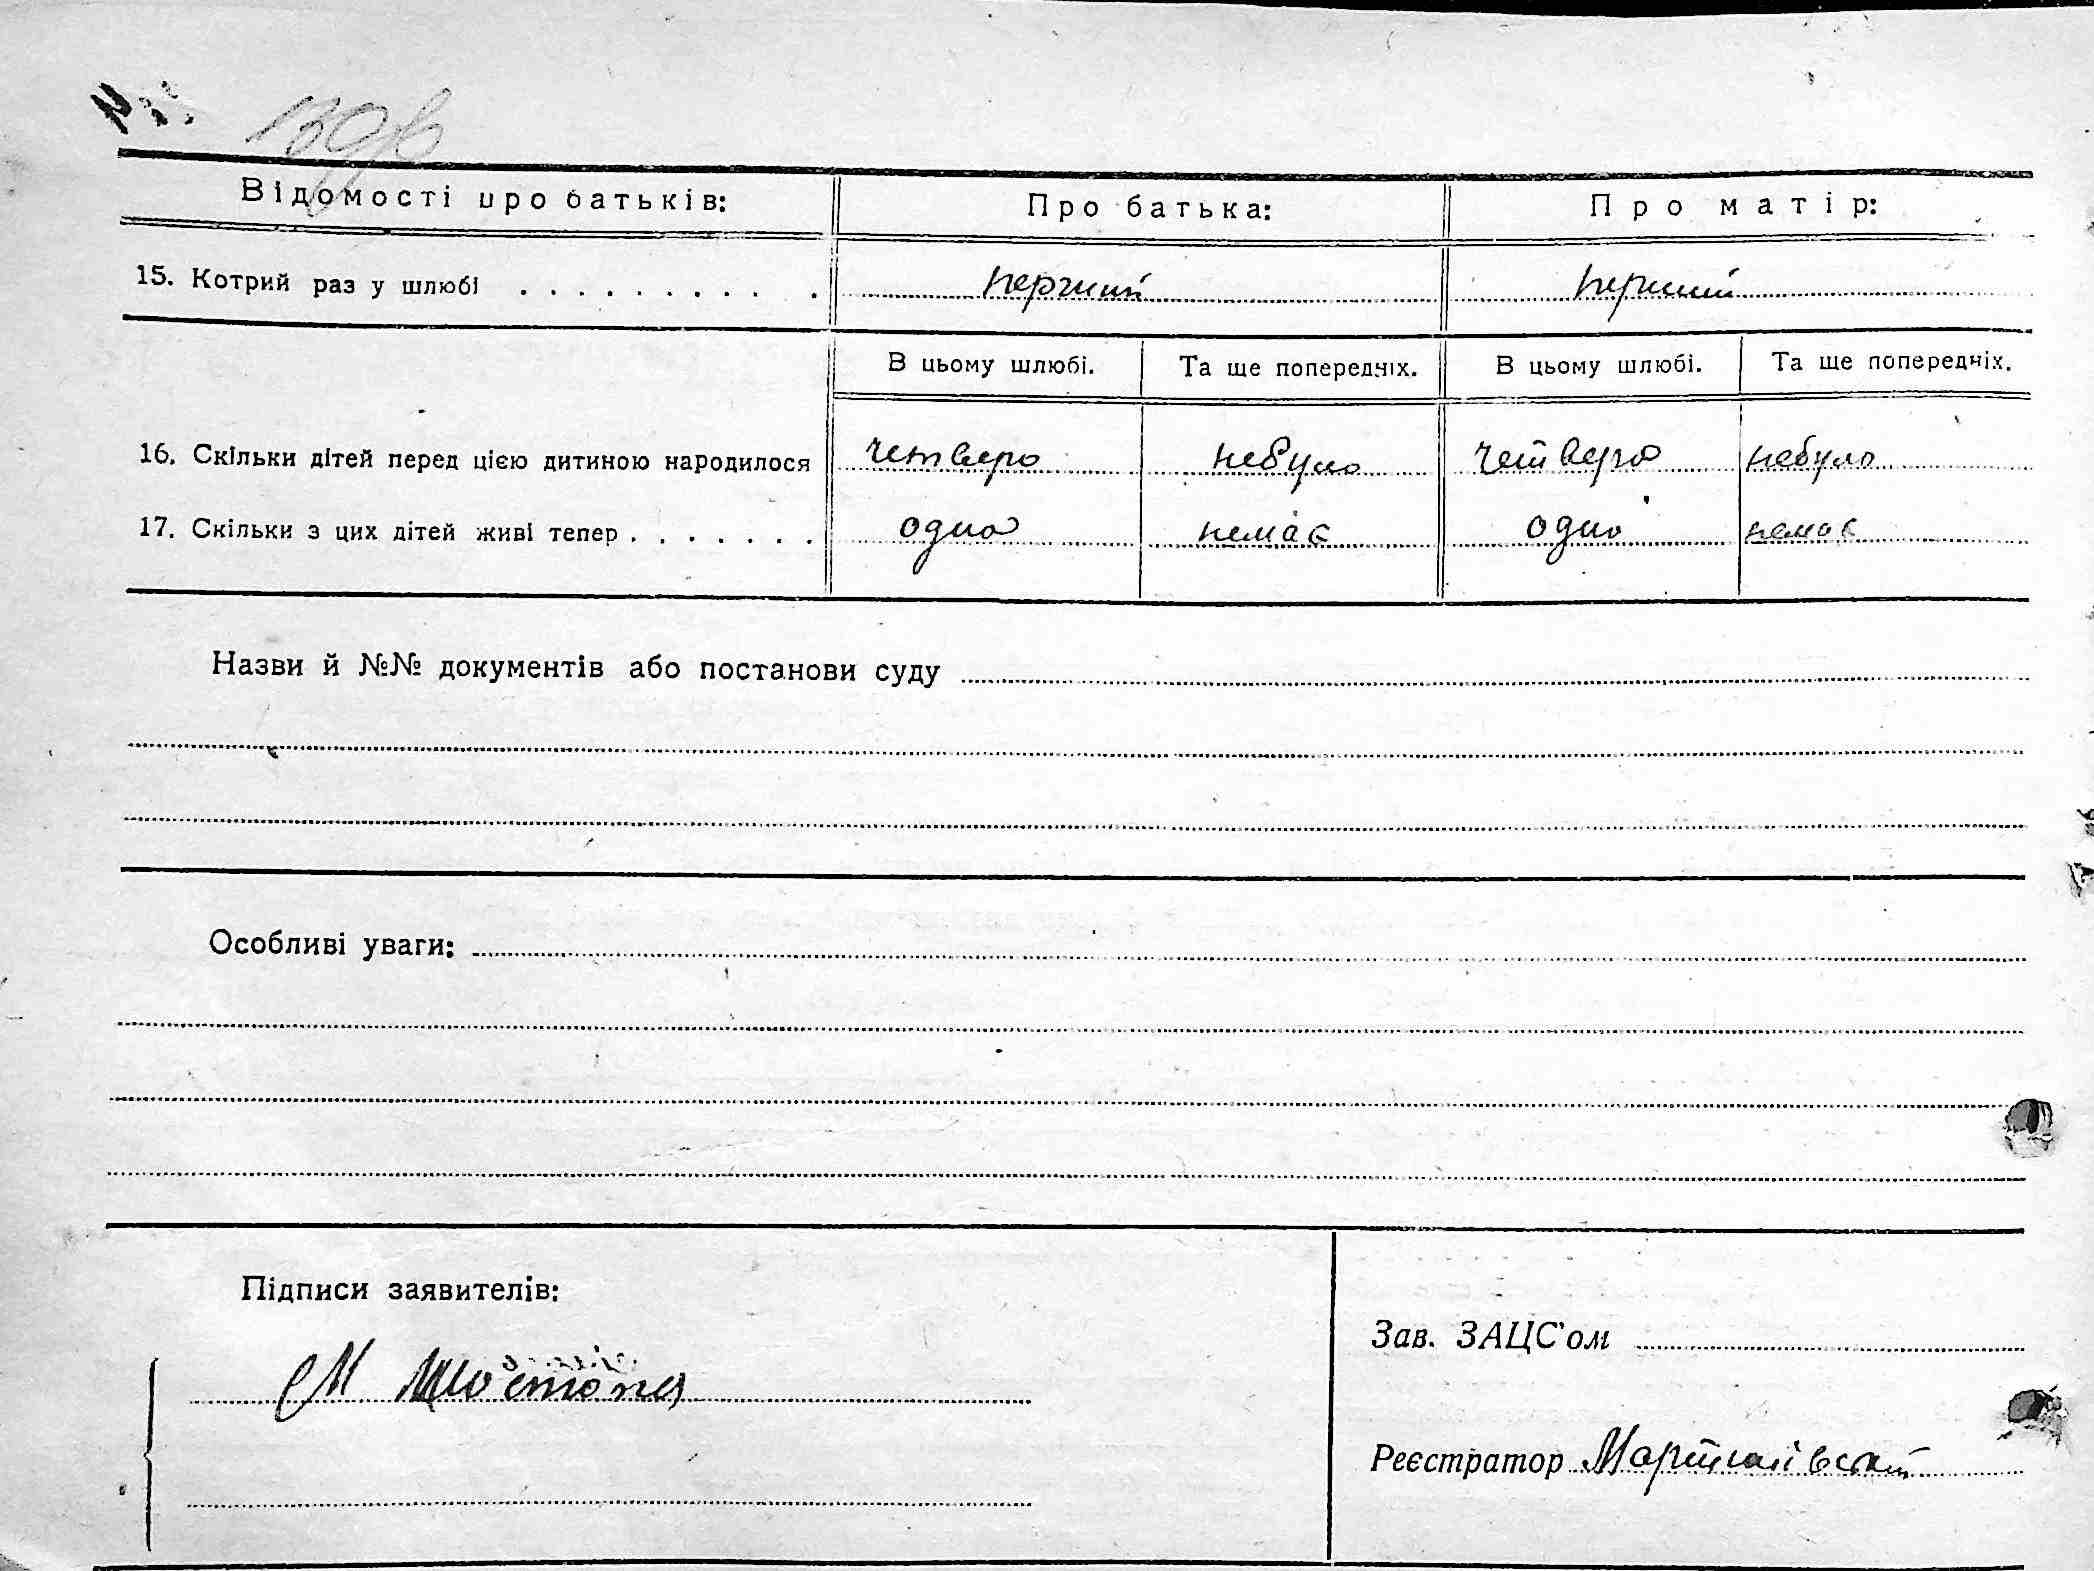 Відомості про батьків: Про батька: Про матір:
15. Котрий раз у шлюбі . . . . . . . . . . перший перший
В цьому шлюбі. Та ще попередніх. В цьому шлюбі. Та ще попередніх.
16. Скільки дітей перед цією дитиною народилося четверо небуло четверо небуло
17. Скільки з цих дітей живі тепер . . . . . . . одно немає одно немає
Назви й №№ документів або постанови суду
Особливі уваги:
Підписи заявителів:
Зав. ЗАЦС'ом
М
Реєстратор